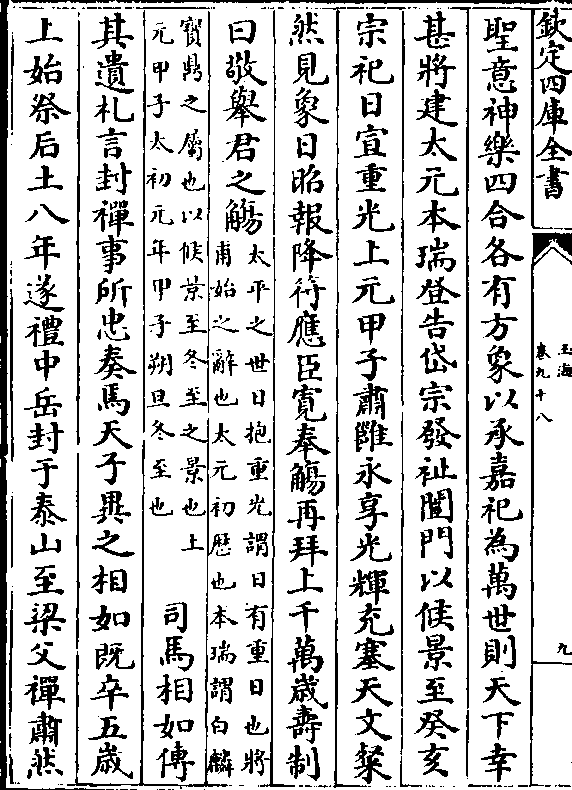 欽定四庫全書
玉海
卷九十八
九
聖意神樂四合各有方象以承嘉祀為萬世則天下幸
甚將建太元本瑞登告岱宗發祉闓門以候景至癸亥
宗祀日宣重光上元甲子肅雝永享光輝充塞天文粲
然見象日昭報降符應臣寛奉觴再拜上千萬歳壽制
曰敬舉君之觴
太平之世日抱重光謂日有重日也將
甫始之辭也太元初厯也本瑞謂白麟
寳鼎之屬也以候景至冬至之景也上
元甲子太初元年甲子朔旦冬至也
司馬相如傳
其遺札言封禪事所忠奏焉天子異之相如既卒五歳
上始祭后土八年遂禮中岳封于泰山至梁父禪肅然